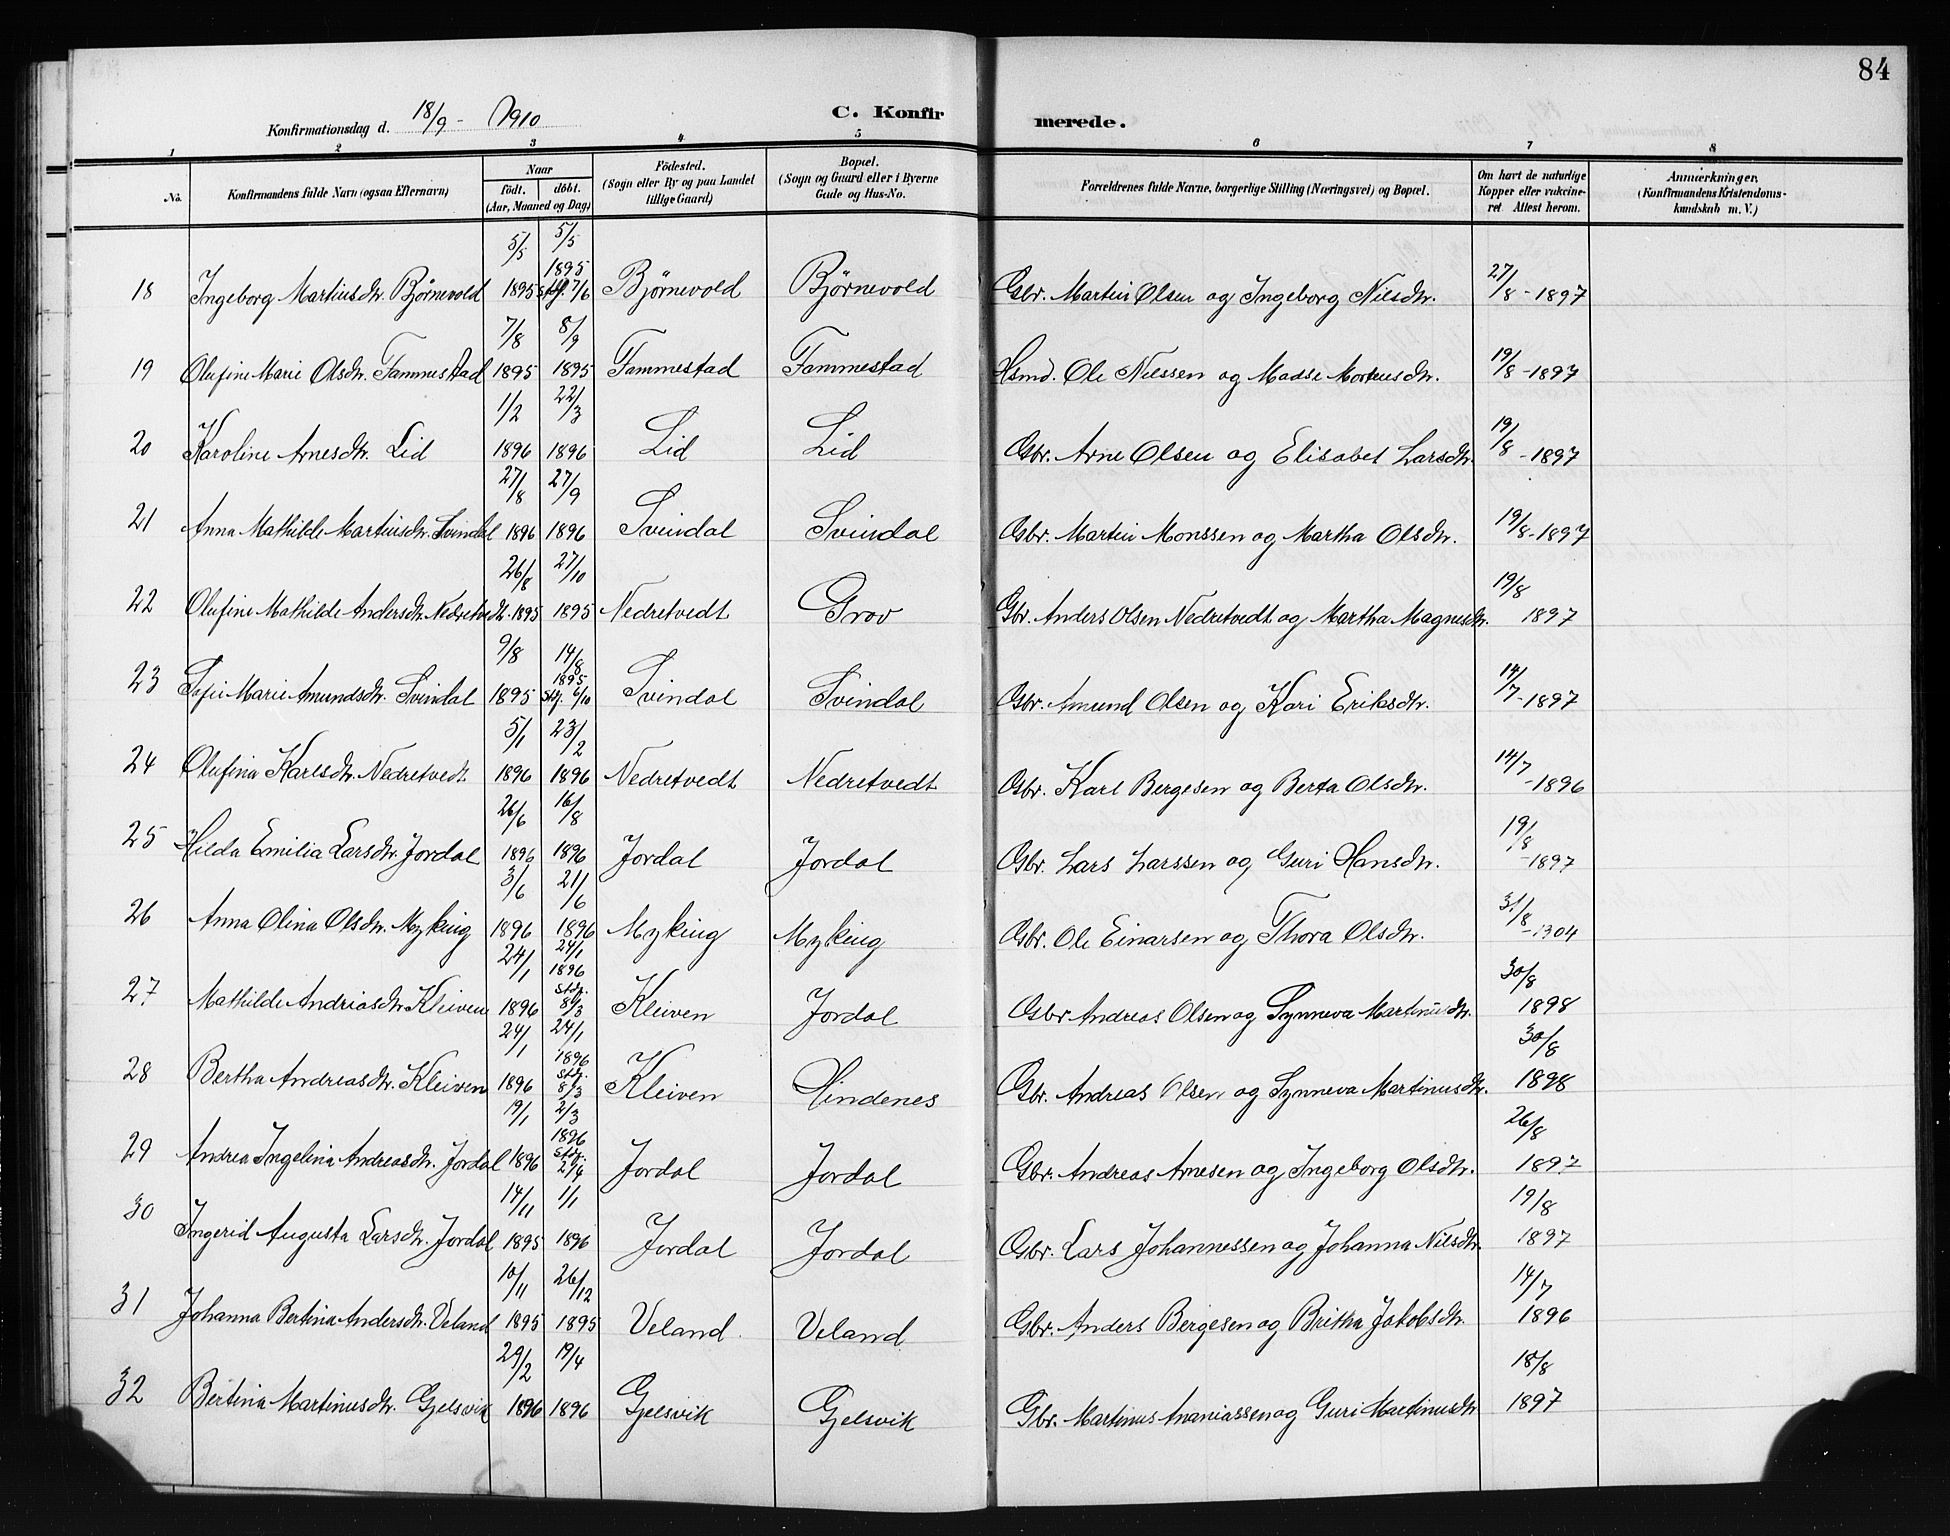 84
Konfirmationsdag d. 18/9 - 1910
C. Konfirmerede.
1 2 3 4 5 6 7 8
No. Konfirmandens fulde Navn (ogsaa Efternavn) Naar födt. döbt. (Aar, Maaned og Dag) Födested. (Sogn eller By og paa Landet tillige Gaard) Bopæl. (Sogn og Gaard eller i Byerne Gade og Hus-No.) Forældrenes fulde Navne, borgerlige Stilling (Næringsvei) og Bopæl. Om havt de naturlige Kopper eller vakcineret Attest herom. Anmærkninger. (Konfirmandens Kristendomskundskab m. V.)
18 Ingeborg Martinsdtr. Bjørnevold 5/5 1895 5/5 1895 Stdf. 7/6 Bjørnevold Bjørnevold Gbr. Martin Olsen og Ingeborg Nilsdtr. 27/8 - 1897
19 Olufine Marie Olsdtr. Fammestad 7/8 1895 8/9 1895 Fammestad Fammestad Hsmd. Ole Nilssen og Madsi Mortensdtr. 19/8 - 1897
20 Karoline Arnesdtr. Lid 1/2 1896 22/3 1896 Lid Lid Gbr. Arne Olsen og Elisabet Larsdtr. 19/8 - 1897
21 Anna Mathilde Martinsdtr. Svindal 27/8 1896 27/9 1896 Svindal Svindal Gbr. Martin Monssen og Martha Olsdtr. 19/8 - 1897
22 Olufine Mathilde Andersdtr. Nedretvedt. 26/8 1895 27/10 1895 Nedretvedt Grov Gbr. Anders Olsen Nedretvedt og Martha Magnesdtr. 19/8 1897
23 Sofie Marie Amundsdtr. Svindal 9/8 1895 14/8 1895 Stdf. 6/10 Svindal Svindal Gbr. Amund Olsen og Kari Eriksdtr. 14/7 - 1897
24 Olufina Karlsdtr. Nedretvedt 5/1 1896 23/2 1896 Nedretvedt Nedretvedt Gbr. Karl Bergesen og Berta Olsdtr. 14/7 - 1896
25 Hilda Emilia Larsdtr. Jordal 26/6 1896 16/8 1896 Jordal Jordal Gbr. Lars Larssen og Guri Hansdtr. 19/8 - 1897
26 Anna Olina Olsdtr. Myking 3/6 1896 21/6 1896 Myking Myking Gbr. Ole Einarsen og Thora Olsdtr. 31/8 - 1904
27 Mathilde Andreasdtr. Kleiven 24/1 1896 24/1 1896 Stdf. 8/3 Kleiven Jordal Gbr. Andreas Olsen og Synneva Martinusdtr. 30/8 1898
28 Bertha Andreasdtr. Kleiven 24/1 1896 24/1 1896 Stdf. 8/3 Kleiven Hindenes Gbr. Andreas Olsen og Synneva Martinusdtr. 30/8 1898
29 Andrea Ingelina Andreasdtr. Jordal 19/1 1896 2/3 1896 Stdf. 2/4 Jordal Jordal Gbr. Andreas Arnesen og Ingeborg Olsdtr. 26/8 1897
30 Ingerid Augusta Larsdtr. Jordal 14/11 1895 1/1 1896 Jordal Jordal Gbr. Lars Johannessen og Johanna Nilsdtr. 19/8 1897
31 Johanna Bertina Andersdtr. Veland 10/11 1895 26/12 1895 Veland Veland Gbr. Anders Bergesen og Britha Jakobsdtr. 14/7 1896
32 Bertina Martinusdtr. Gjelsvik 29/2 1896 19/4 1896 Gjelsvik Gjelsvik Gbr. Martinus Ananiassen og Guri Martinusdtr 18/8 1897